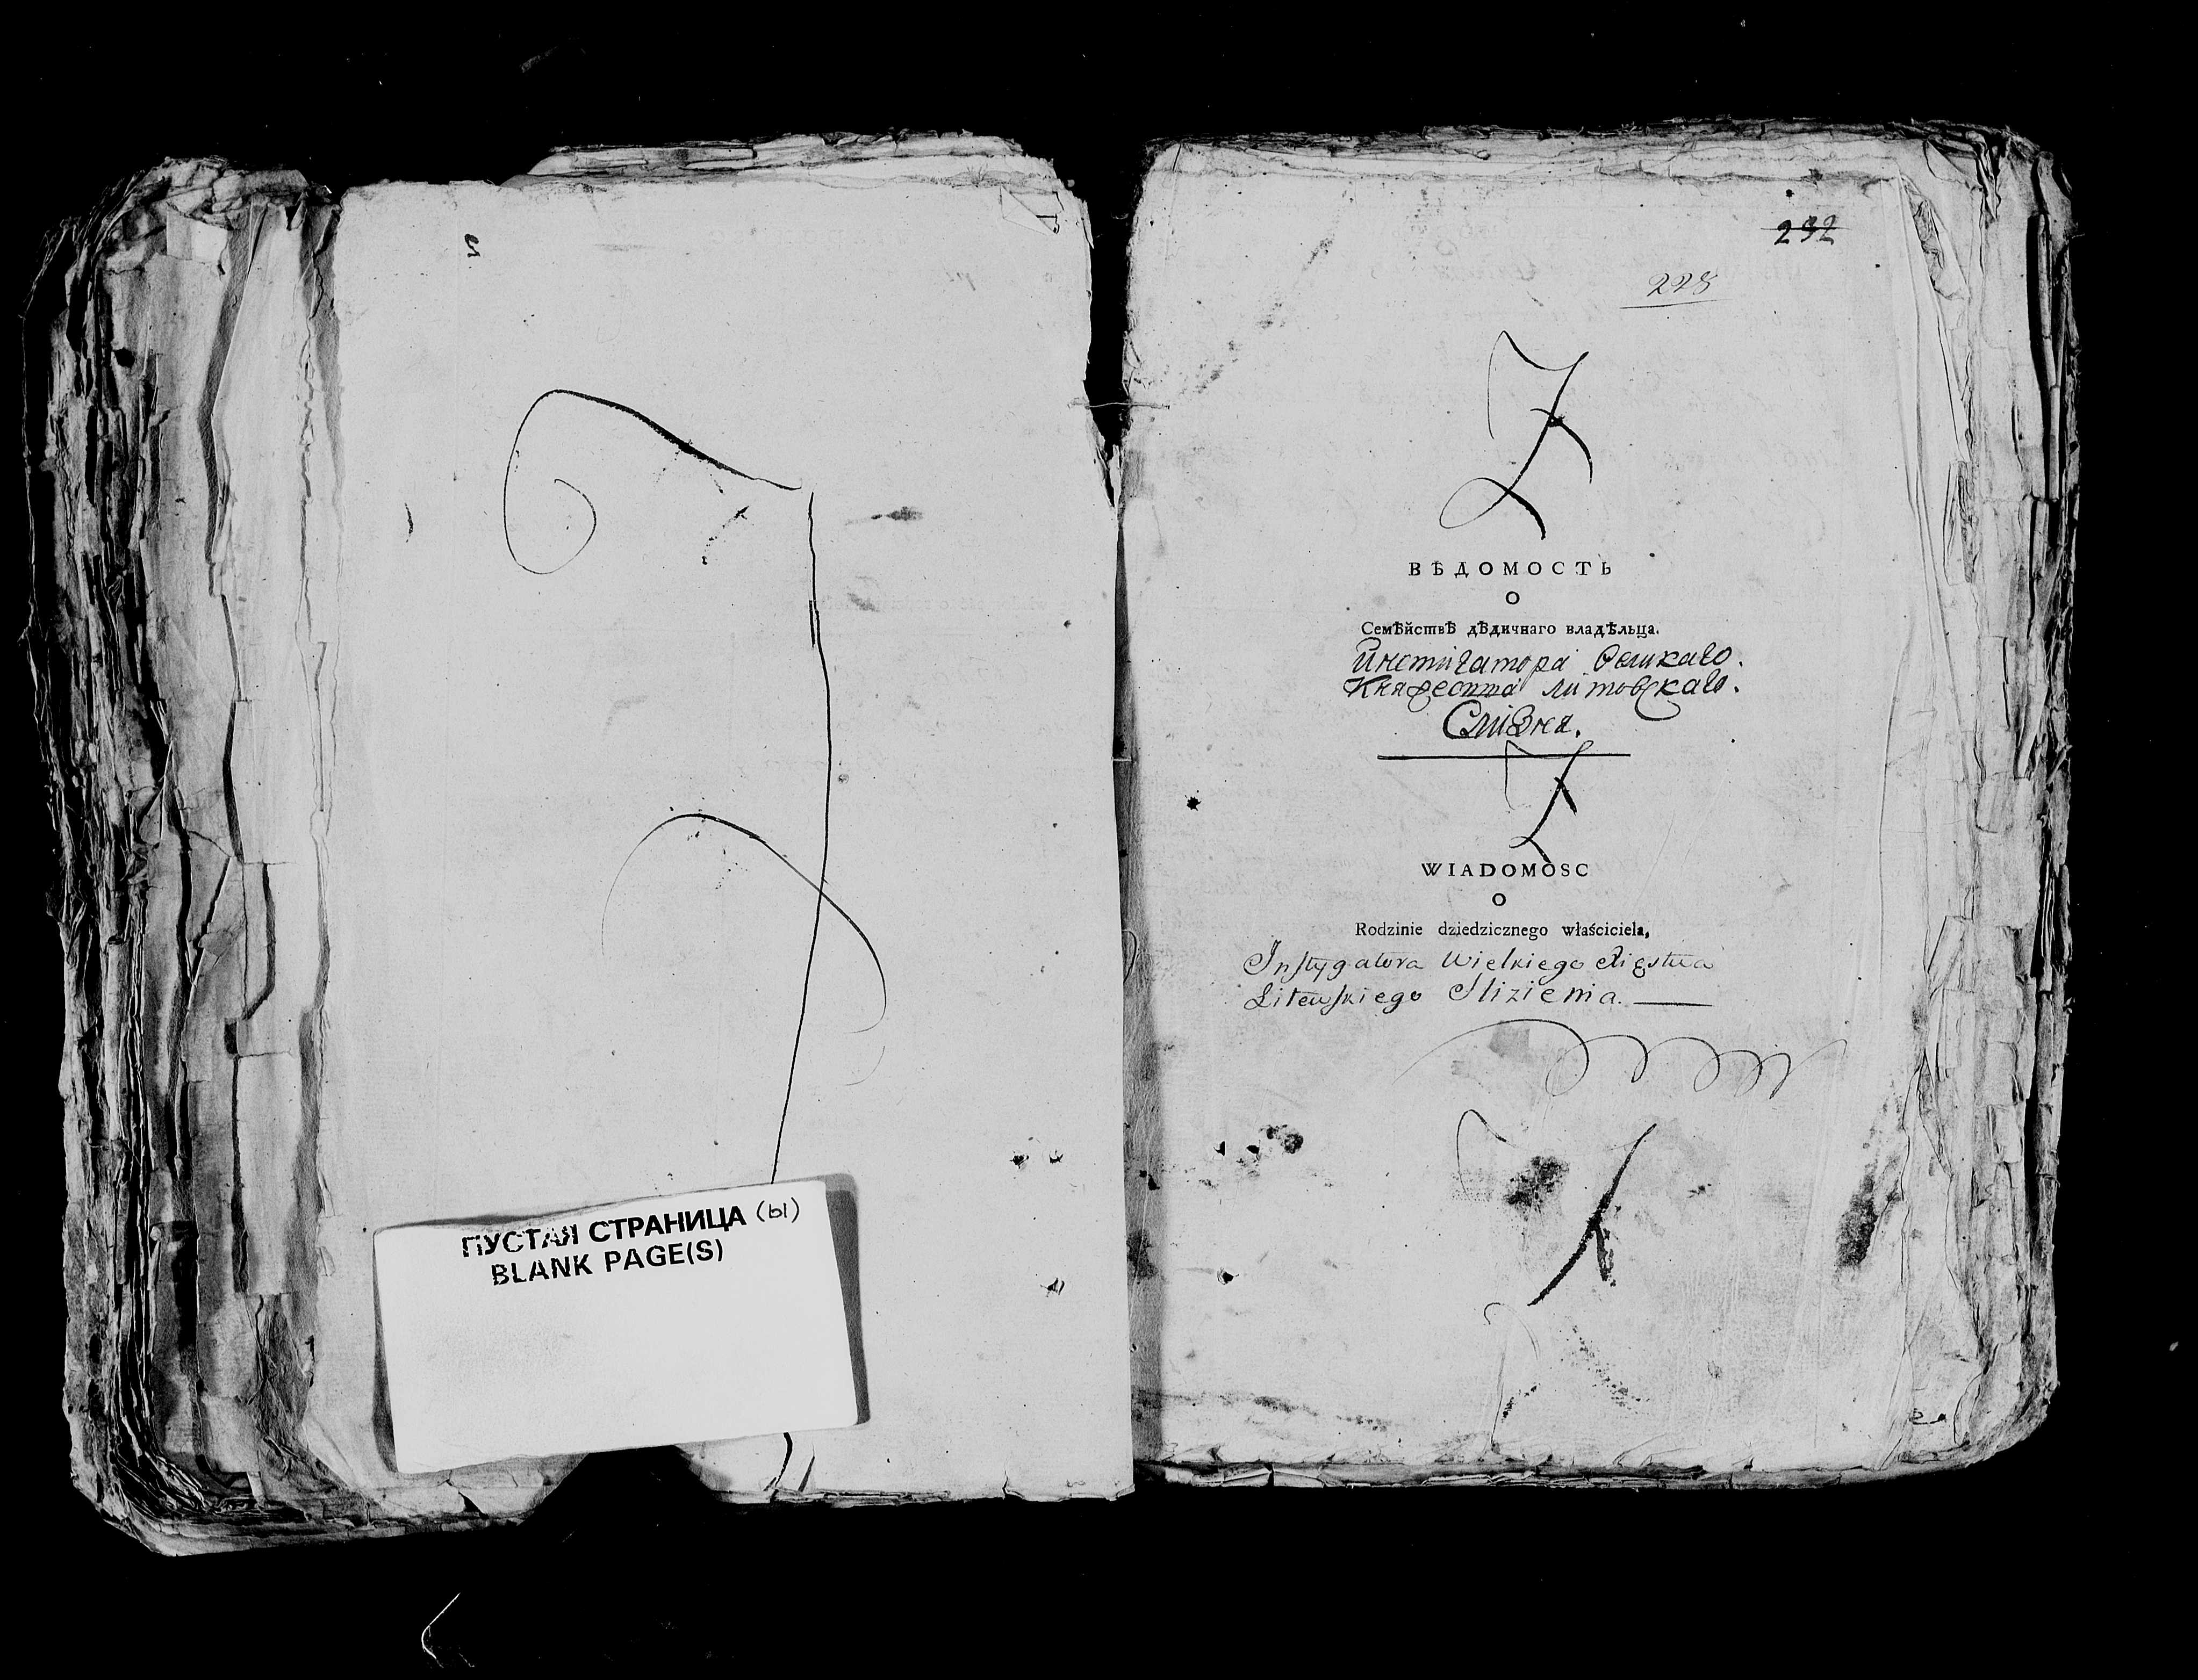 ПУСТАЯ СТРАНИЦА (ы)
BLANK PAGE(S)
292
228
ВѢДОМОСТЬ
О
Семѣйствѣ дѣдичнаго владѣльца.
Инстигатора Великаго.
Княжества литовскаго.
Слизня.
WIADOMOSC
O
Rodzinie dziedzicznego właściciela,
Instygatora Wielkiego Xięstwa
Litewskiego Slizienia.